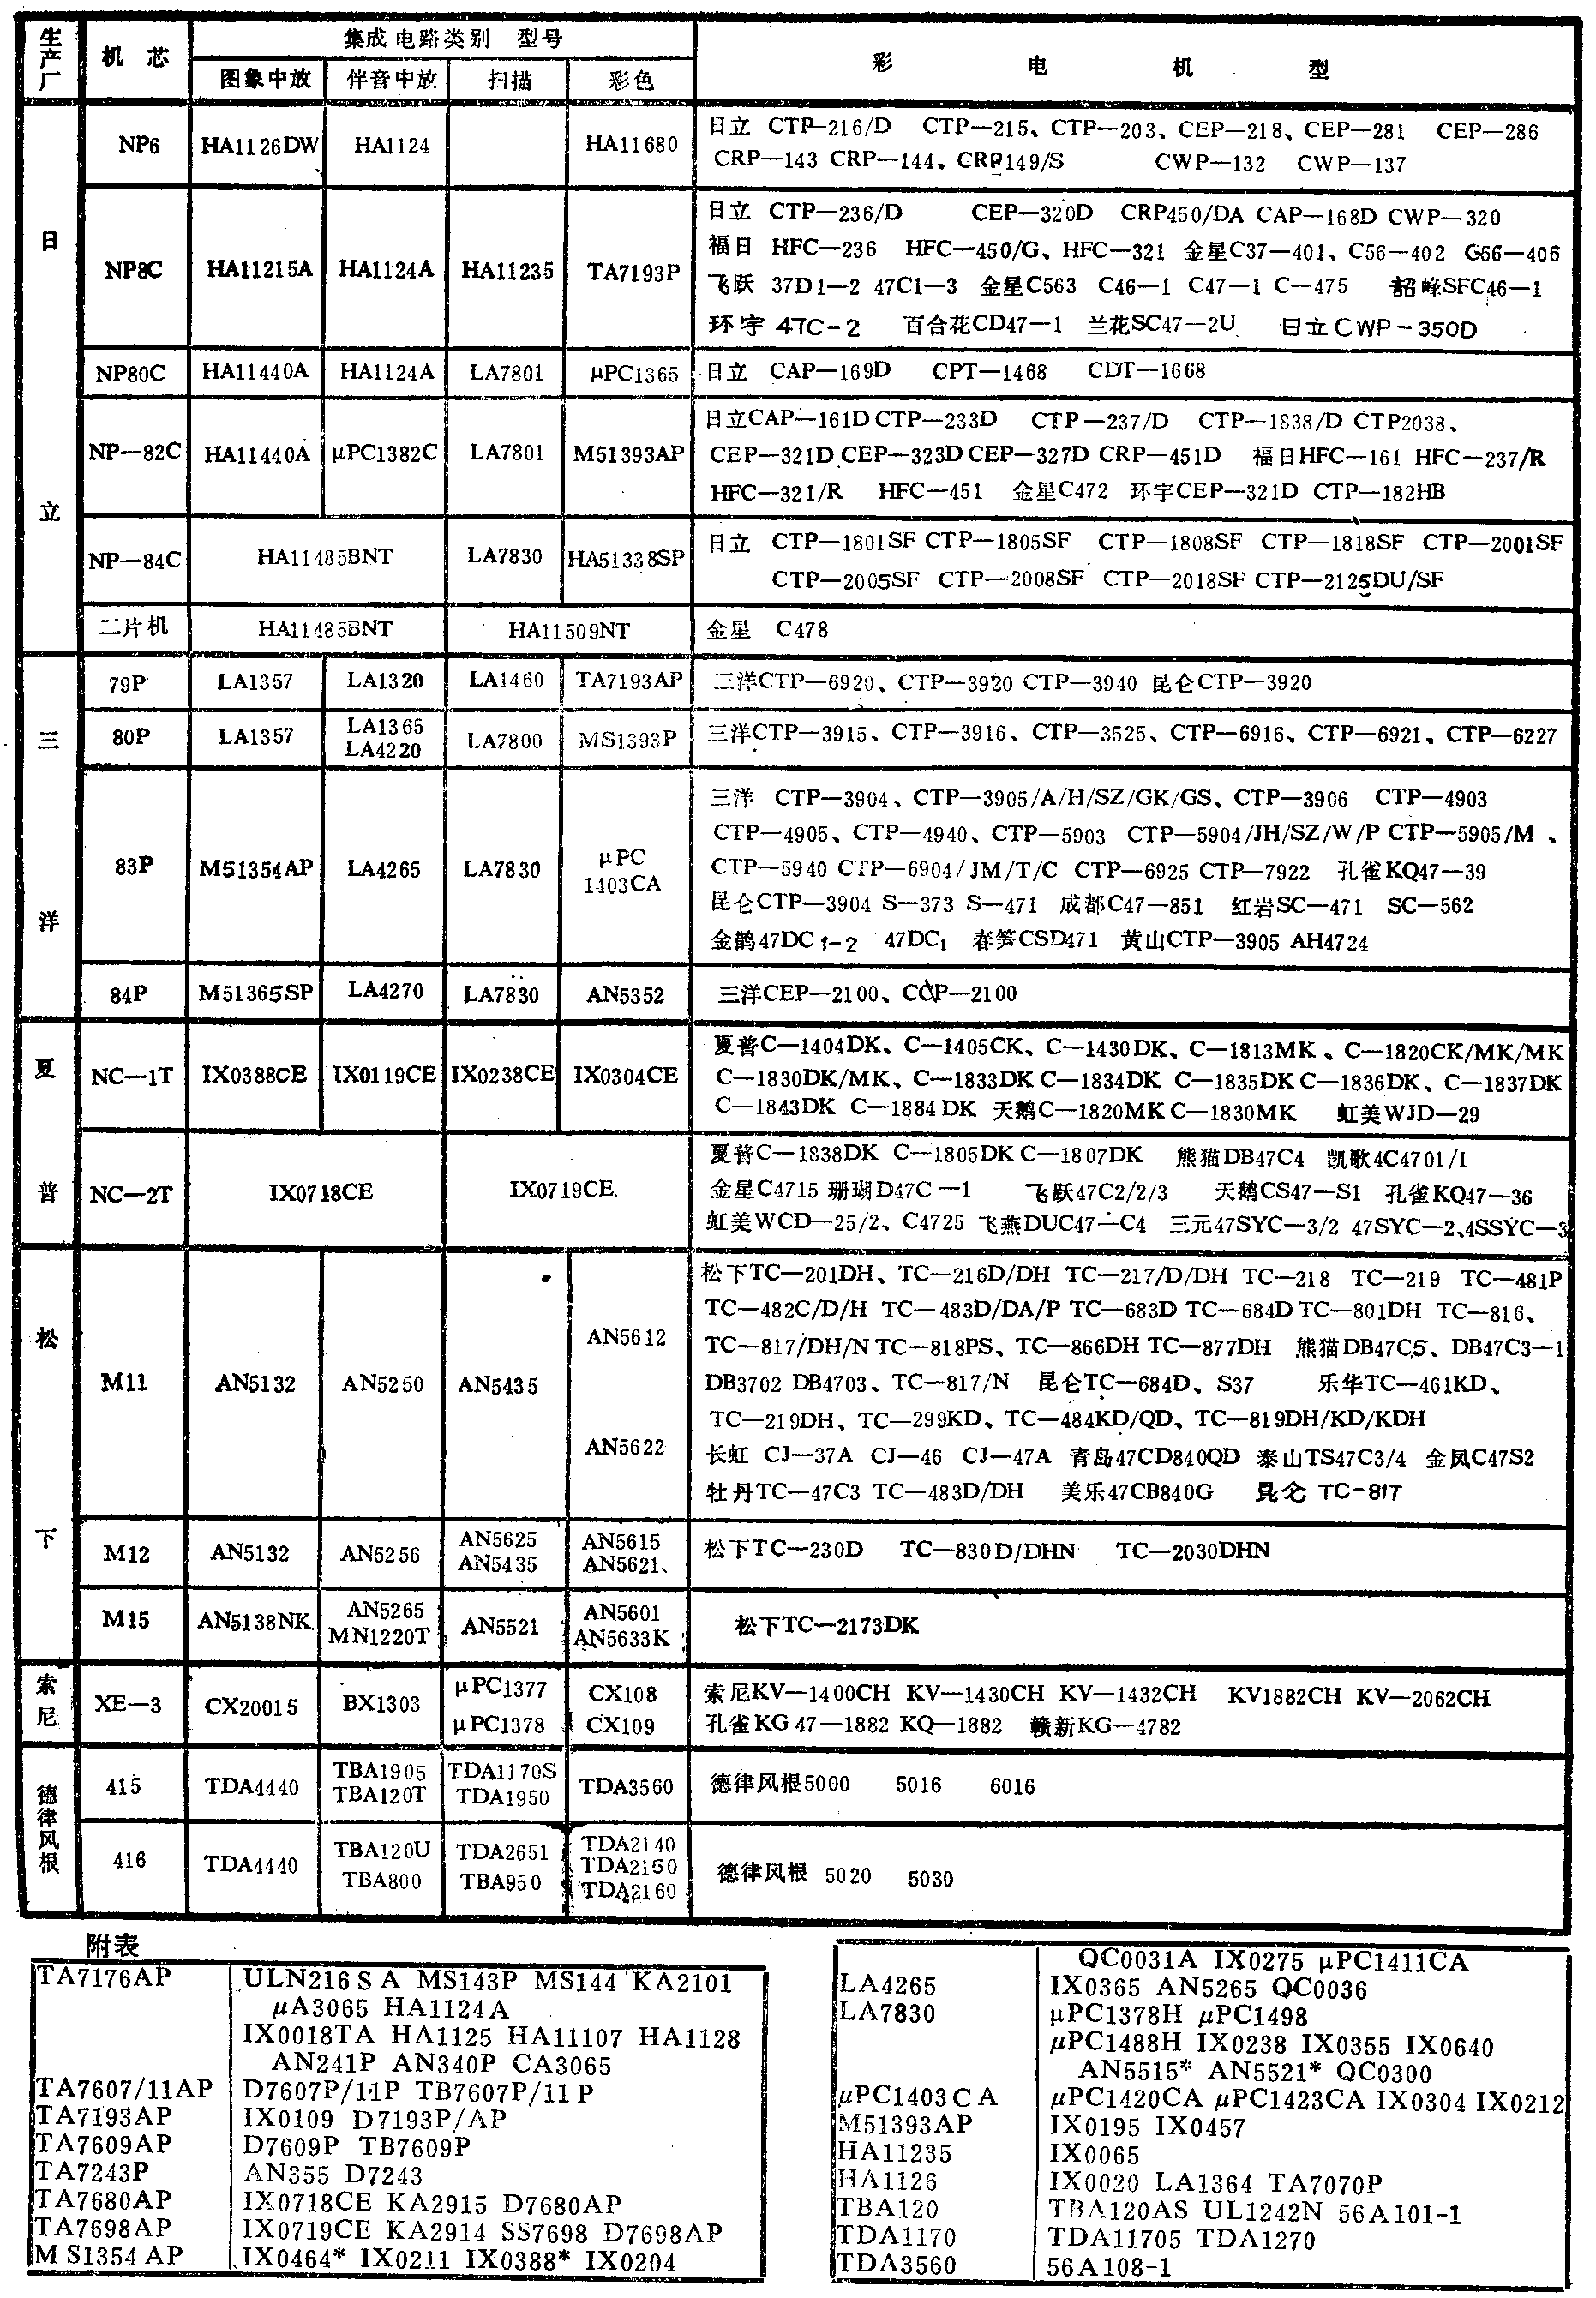 生产厂 机芯 集成电路类别 型号 彩电机型
图象中放 伴音中放 扫描 彩色
日立
NP6 HA1126DW HA1124 HA11680
日立 CTP—216/D CTP—215、CTP—203、CEP—218、CEP—281 CEP—286
CRP—143 CRP—144、CRP149/S CWP—132 CWP—137
NP8C HA11215A HA1124A HA11235 TA7193P
日立 CTP—236/D CEP—320D CRP450/DA CAP—168D CWP—320
福日 HFC—236 HFC—450/G、HFC—321 金星C37—401、C56—402 C56—406
飞跃 37D1—2 47C1—3 金星C563 C46—1 C47—1 C—475 韶峰SFC46—1
环宇 47C-2 百合花CD47—1 兰花SC47—2U 日立CWP-350D
NP80C HA11440A HA1124A LA7801 μPC1365 日立 CAP—169D CPT—1468 CDT—1668
NP—82C HA11440A μPC1382C LA7801 M51393AP
日立CAP—161D CTP—233D CTP—237/D CTP—1838/D CTP2038、
CEP—321D CEP—323D CEP—327D CRP—451D 福日HFC—161 HFC—237/R
HFC—321/R HFC—451 金星C472 环宇CEP—321D CTP—182HB
NP—84C HA11485BNT LA7830 HA51338SP
日立 CTP—1801SF CTP—1805SF CTP—1808SF CTP—1818SF CTP—2001SF
CTP—2005SF CTP—2008SF CTP—2018SF CTP—2125DU/SF
二片机 HA11485BNT HA11509NT 金星 C478
三洋
79P LA1357 LA1320 LA1460 TA7193AP 三洋CTP—6920、CTP—3920 CTP—3940 昆仑CTP—3920
80P LA1357 LA1365 LA4220 LA7800 MS1393P 三洋CTP—3915、CTP—3916、CTP—3525、CTP—6916、CTP—6921、CTP—6227
83P M51354AP LA4265 LA7830 μPC 1403CA
三洋 CTP—3904、CTP—3905/A/H/SZ/GK/GS、CTP—3906 CTP—4903
CTP—4905、CTP—4940、CTP—5903 CTP—5904/JH/SZ/W/P CTP—5905/M、
CTP—5940 CTP—6904/JM/T/C CTP—6925 CTP—7922 孔雀KQ47—39
昆仑CTP—3904 S—373 S—471 成都C47—851 红岩SC—471 SC—562
金鹊47DC1-2 47DC1 春笋CSD471 黄山CTP—3905 AH4724
84P M51365SP LA4270 LA7830 AN5352 三洋CEP—2100、CCP—2100
夏普
NC—1T IX0388CE IX0119CE IX0238CE IX0304CE
夏普C—1404DK、C—1405CK、C—1430DK、C—1813MK、C—1820CK/MK/MK
C—1830DK/MK、C—1833DK C—1834DK C—1835DK C—1836DK、C—1837DK
C—1843DK C—1884DK 天鹅C—1820MK C—1830MK 虹美WJD—29
NC—2T IX0718CE IX0719CE
夏普C—1838DK C—1805DK C—1807DK 熊猫DB47C4 凯歌4C4701/1
金星C4715 珊瑚D47C—1 飞跃47C2/2/3 天鹅CS47—S1 孔雀KQ47—36
虹美WCD—25/2、C4725 飞燕DUC47—C4 三元47SYC—3/2 47SYC—2、4SSYC—3
松下
M11 AN5132 AN5250 AN5435 AN5612 AN5622
松下TC—201DH、TC—216D/DH TC—217/D/DH TC—218 TC—219 TC—481P
TC—482C/D/H TC—483D/DA/P TC—683D TC—684D TC—801DH TC—816、
TC—817/DH/N TC—818PS、TC—866DH TC—877DH 熊猫DB47C5、DB47C3—1
DB3702 DB4703、TC—817/N 昆仑TC—684D、S37 乐华TC—461KD、
TC—219DH、TC—299KD、TC—484KD/QD、TC—819DH/KD/KDH
长虹 CJ—37A CJ—46 CJ—47A 青岛47CD840QD 泰山TS47C3/4 金凤C47S2
牡丹TC—47C3 TC—483D/DH 美乐47CB840G 昆仑 TC-817
M12 AN5132 AN5256 AN5625 AN5435 AN5615 AN5621、 松下TC—230D TC—830D/DHN TC—2030DHN
M15 AN5138NK AN5265 MN1220T AN5521 AN5601 AN5633K 松下TC—2173DK
索尼
XE—3 CX20015 BX1303 μPC1377 μPC1378 CX108 CX109
索尼KV—1400CH KV—1430CH KV—1432CH KV1882CH KV—2062CH
孔雀KG47—1882 KQ—1882 赣新KG—4782
德律风根
415 TDA4440 TBA1905 TBA120T TDA1170S TDA1950 TDA3560 德律风根5000 5016 6016
416 TDA4440 TBA120U TBA800 TDA2651 TBA950 TDA2140 TDA2150 TDA2160 德律风根 5020 5030
附表
TA7176AP ULN216SA MS143P MS144 KA2101
μA3065 HA1124A
IX0018TA HA1125 HA11107 HA1128
AN241P AN340P CA3065
TA7607/11AP D7607P/11P TB7607P/11P
TA7193AP IX0109 D7193P/AP
TA7609AP D7609P TB7609P
TA7243P AN355 D7243
TA7680AP IX0718CE KA2915 D7680AP
TA7698AP IX0719CE KA2914 SS7698 D7698AP
MS1354AP IX0464* IX0211 IX0388* IX0204
QC0031A IX0275 μPC1411CA
LA4265 IX0365 AN5265 QC0036
LA7830 μPC1378H μPC1498
μPC1488H IX0238 IX0355 IX0640
AN5515* AN5521* QC0300
μPC1403CA μPC1420CA μPC1423CA IX0304 IX0212
M51393AP IX0195 IX0457
HA11235 IX0065
HA1126 IX0020 LA1364 TA7070P
TBA120 TBA120AS UL1242N 56A101-1
TDA1170 TDA11705 TDA1270
TDA3560 56A108-1